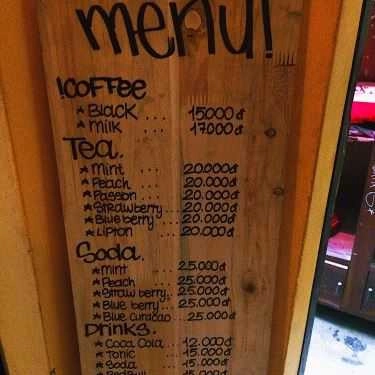 menu!
!COFFEE
* Black ... 15000 đ
* Milk ... 17000 đ
Tea.
* Mint ... 20.000đ
* Peach ... 20.000đ
* Passion ... 20.000đ
* Strawberry... 20.000đ
* Blue berry... 20.000đ
* Lipton ... 20.000đ
Soda.
* Mint ... 25.000đ
* Peach ... 25.000đ
* Straw berry... 25.000đ
* Blue berry... 25.000đ
* Blue Curacao .. 25.000đ
DRINKS.
* Coca Cola... 12.000 đ
* Tonic ... 15.000 đ
* Soda ... 15.000 đ
* RedBull ... 15.000 đ